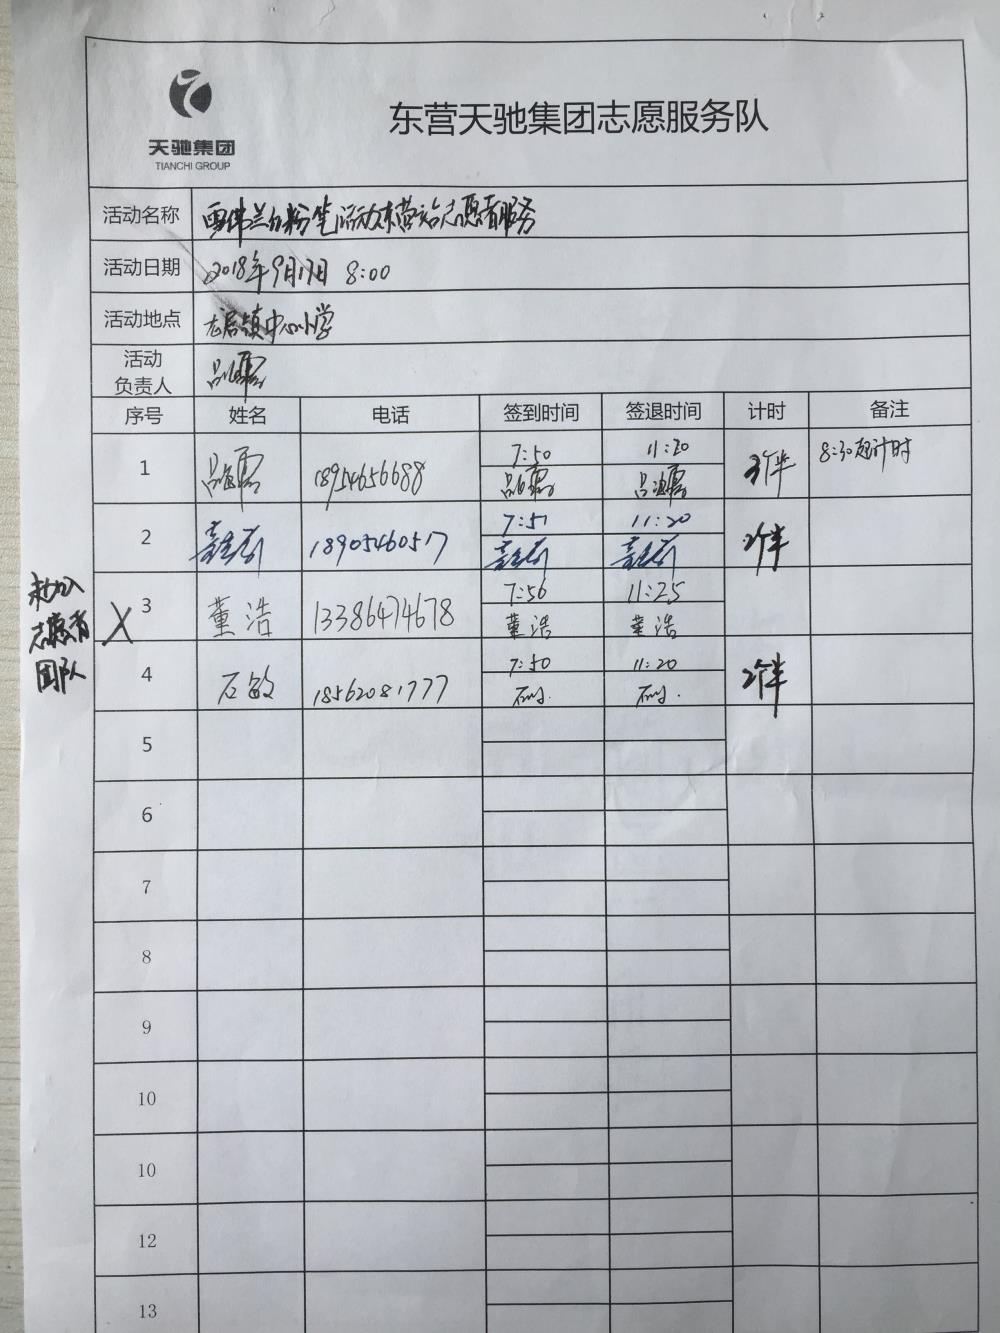 天驰集团
TIANCHI GROUP
东营天驰集团志愿服务队
活动名称 雪佛兰红粉笔活动东营站志愿者服务
活动日期 2018年9月17日 8:00
活动地点 龙居镇中心小学
活动
负责人 吕
序号 姓名 电话 签到时间 签退时间 计时 备注
7:50 11:20
1 吕 18954656688 个半 8:30起计时
吕 吕
7:51 11:20
2 18905460517 2个半
未加入
志愿者
团队
7:56 11:25
X 3 董浩 13386474678
董浩 董浩
7:50 11:20
4 石敏 18562081777 2个半
石敏. 石敏.
5
6
7
8
9
10
10
12
13